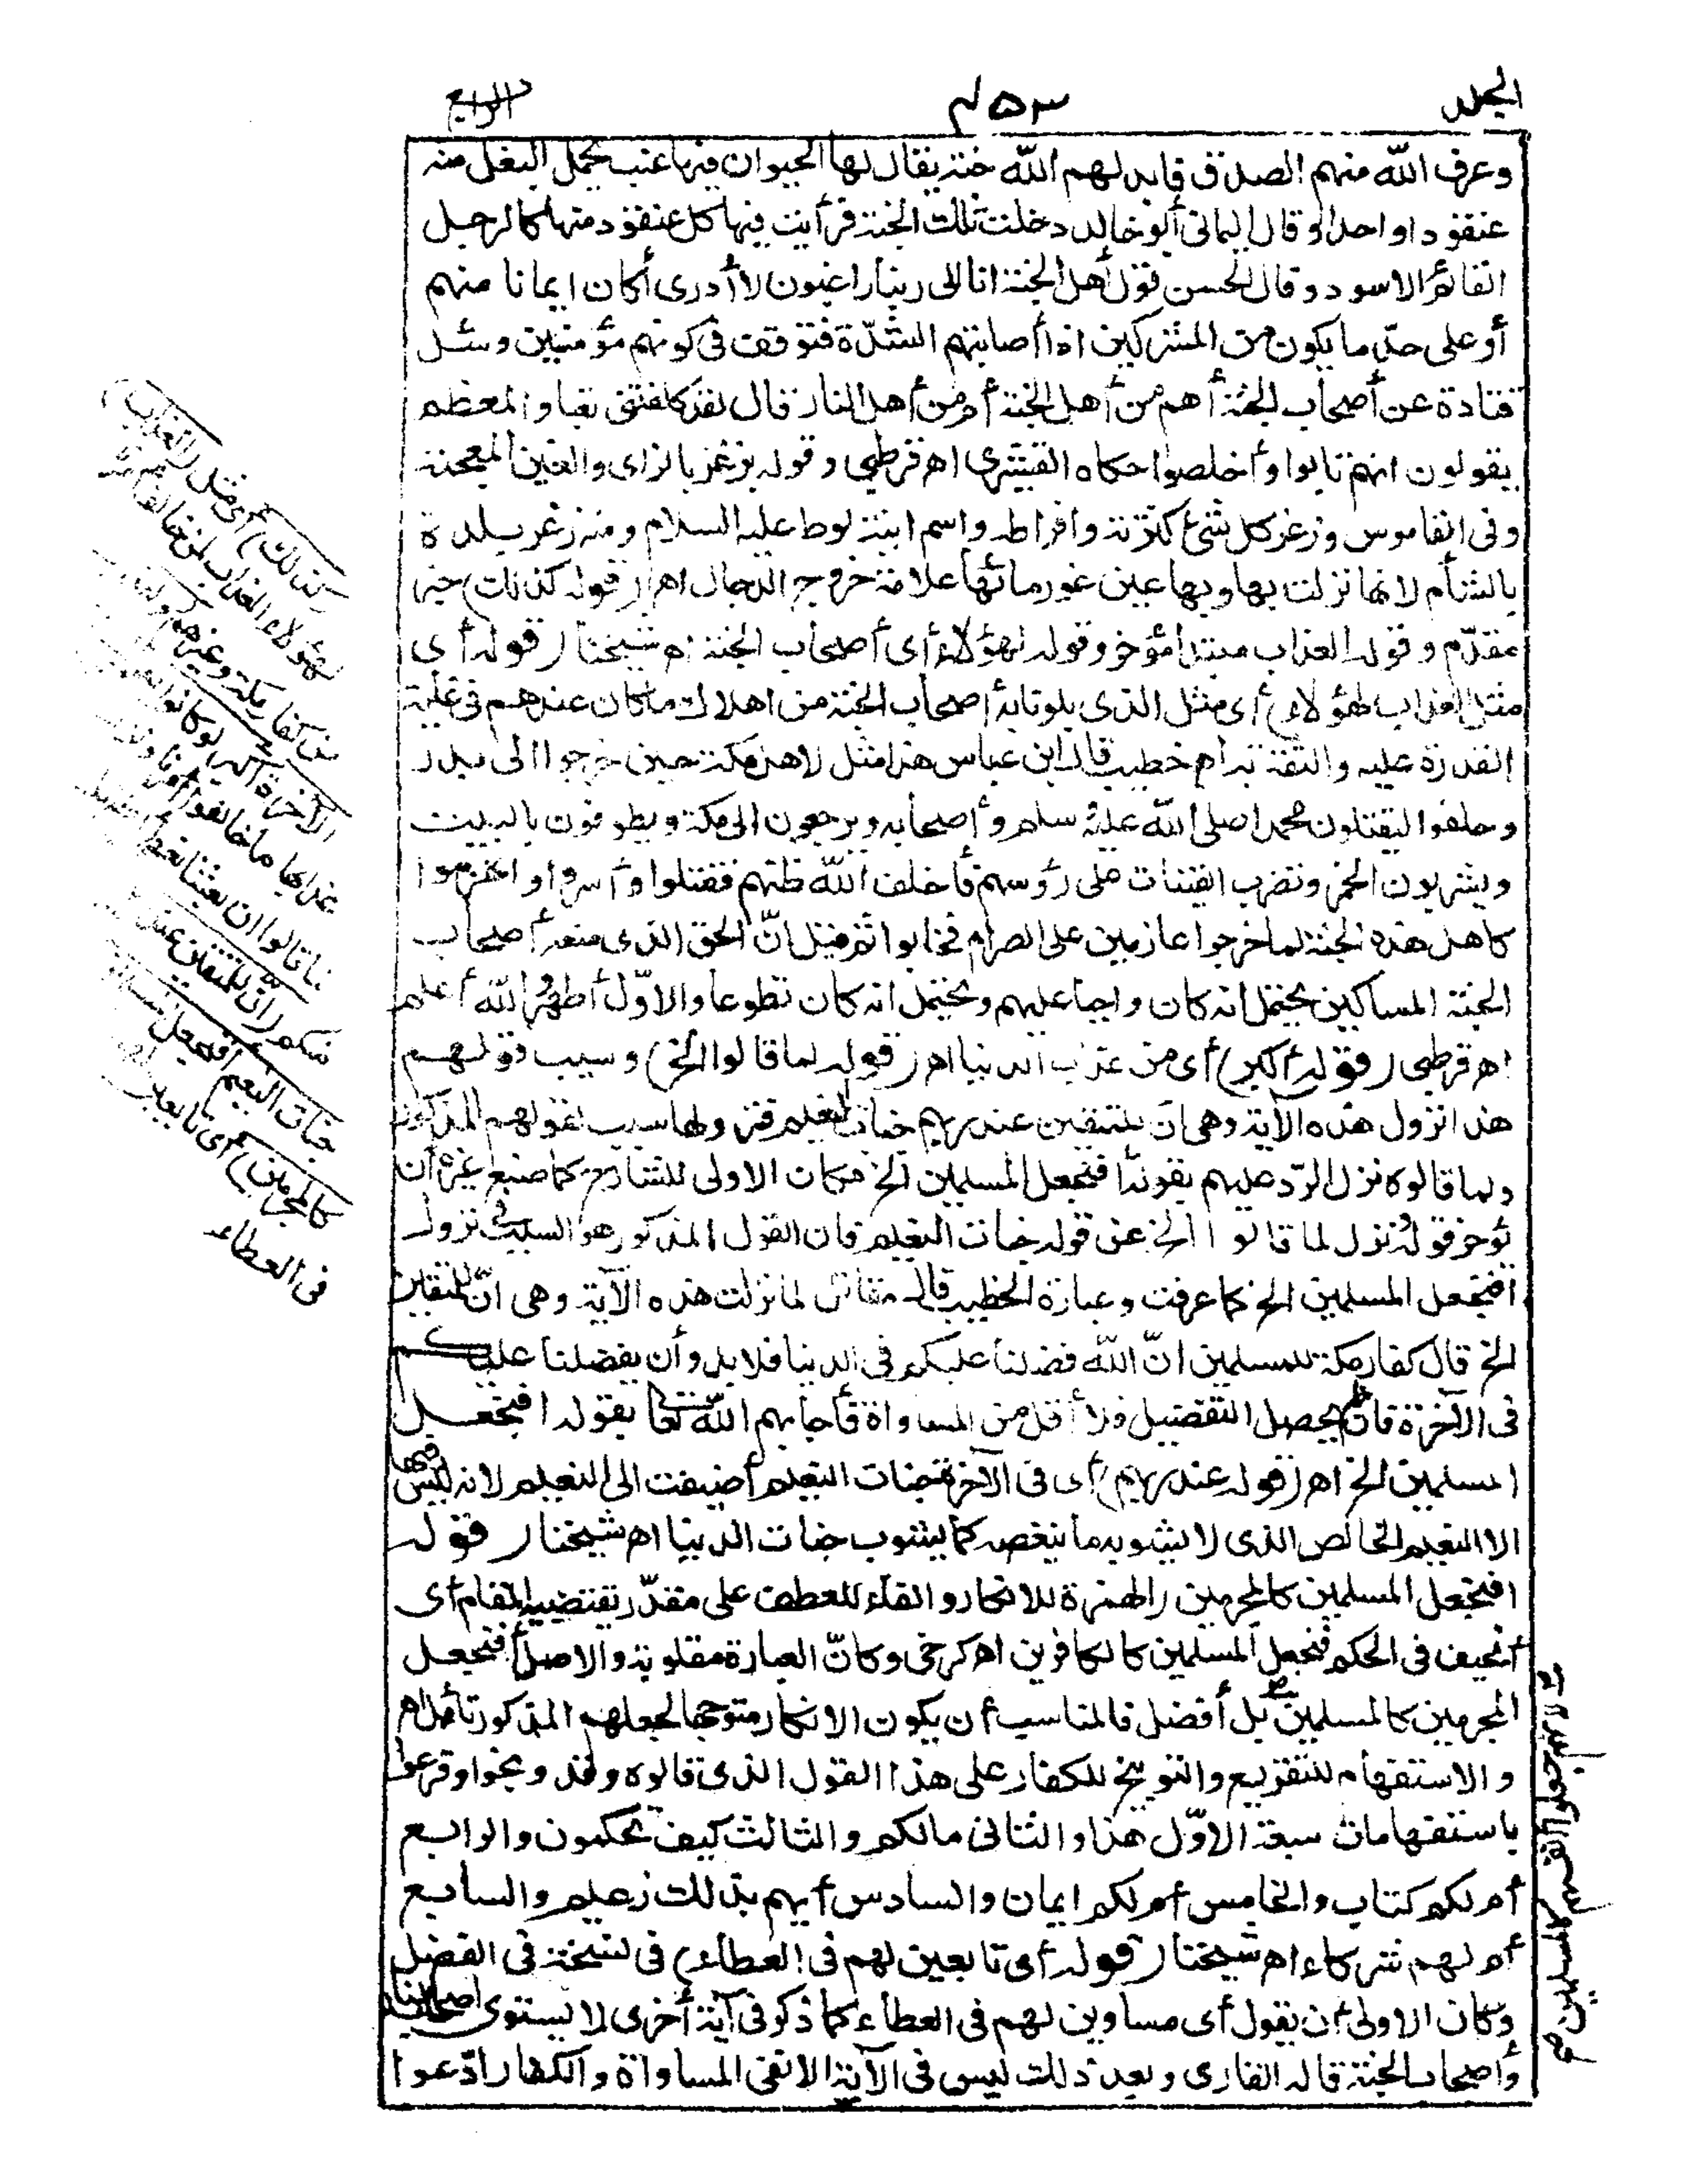 الجلد
٤٥٣
الرابع
وعرف الله منهم الصدق فابدلهم الله جنة يقال لها الحيوان فيها عنب يحمل البغل منه
عنقودا واحدا وقال اليمانى أبو خالد دخلت تلك الجنة فرأيت فيها كل عنقود منها كالرجل
القائم الاسود وقال الحسن قول أهل الجنة انا الى ربنا راغبون لا أدرى أكان ايمانا منهم
أو على حد ما يكون من المشركين اذا أصابتهم الشدّة فتوقف فى كونهم مؤمنين وسئل
قتادة عن أصحاب الجنة أهم من أهل الجنة أم من أهل النار قال لقد كلفتنى تعبا والمعظم
يقولون انهم تابوا وأخلصوا حكاه القشيرى اه قرطبى وقوله بزغر بالزاى والغين المعجمة
وفى القاموس وزغر كل شئ كثرته وافراطه واسم ابنة لوط عليه السلام ومنه زغر بلدة
بالشأم لانها نزلت بها وبها عين غور مائها علامة خروج الدجال اه (قوله كذلك) خبر
مقدّم وقوله العذاب مبتدأ مؤخر وقوله لهؤلاء أى أصحاب الجنة اه شيخنا (قوله أى
مثل العذاب لهؤلاء) أى مثل الذى بلونا به أصحاب الجنة من اهلاك ما كان عندهم فى غاية
القدرة عليه والثقة به اه خطيب قال ابن عباس هذا مثل لاهل مكة حين خرجوا الى بدر
وحلفوا ليقتلون محمدا صلى الله عليه وسلم وأصحابه ويرجعون الى مكة ويطوفون بالبيت
ويشربون الخمر وتضرب القينات على رؤسهم فأخلف الله ظنهم فقتلوا وأسروا وانهزموا
كاهل هذه الجنة لما خرجوا عازمين على الصرام فخابوا ثم قيل انّ الحق الذى منعه أصحاب
الجنة المساكين يحتمل انه كان واجبا عليهم ويحتمل انه كان تطوعا والاوّل أظهر والله أعلم
اه قرطبى (قوله أكبر) أى من عذاب الدنيا اه (قوله لما قالوا الخ) وسبب قولهم
هذا نزول هذه الآية وهى انّ للمتقين عند ربهم جنات النعيم فنزولها سبب لقولهم المذكور
ولما قالوه نزل الردّ عليهم بقوله أفنجعل المسلمين الخ فكان الاولى للشارح كما صنع غيره أن
يؤخر قوله نزل لما قالوا الخ عن قوله جنات النعيم فان القول المذكور هو السبب فى نزول
أفنجعل المسلمين الخ كما عرفت وعبارة الخطيب قال مقاتل لما نزلت هذه الآية وهى انّ للمتقين
الخ قال كفار مكة للمسلمين انّ الله فضلنا عليكم فى الدنيا فلا بد وأن يفضلنا عليكم
فى الآخرة فان لم يحصل التفضيل فلا أقل من المساواة فأجابهم الله تعالى بقوله أفنجعل
المسلمين الخ اه (قوله عند ربهم) أى فى الآخرة جنات النعيم أضيفت الى النعيم لانه ليس فيها
الا النعيم الخالص الذى لا يشوبه ما ينغصه كما يشوب جنات الدنيا اه شيخنا (قوله
أفنجعل المسلمين كالمجرمين) الهمزة للانكار والفاء للعطف على مقدّر يقتضيه المقام أى
أنحيف فى الحكم فنجعل المسلمين كالكافرين اه كرخى وكانّ العبارة مقلوبة والاصل أفنجعل
المجرمين كالمسلمين بل أفضل فالمناسب أن يكون الانكار متوجها لجعلهم المذكور تأمل اه
والاستفهام للتقريع والتوبيخ للكفار على هذا القول الذى قالوه وقد وبخوا وقرعوا
باستفهامات سبعة الاوّل هذا والثانى مالكم والثالث كيف تحكمون والرابع
أم لكم كتاب والخامس أم لكم ايمان والسادس أيهم بذلك زعيم والسابع
أم لهم شركاء اه شيخنا (قوله أى تابعين لهم فى العطاء) فى نسخة فى الفضل
وكان الاولى أن يقول أى مساوين لهم فى العطاء كما ذكر فى آية أخرى لا يستوى أصحاب النار
وأصحاب الجنة قاله القارى وبعد ذلك ليس فى الآية الا نفى المساواة والكفار ادّعوا
كذلك) أى مثل (العذاب)
لهؤلاء العذاب لمن خالف
من كفار مكة وغيرهم
الآخرة أكبر لو كانوا
عذابها ما خالفوا أمرنا
لما قالوا ان بعثنا نعطى
منكم (انّ للمتقين عند
جنات النعيم أفنجعل
كالمجرمين) أى تابعين
فى العطاء
كالمسلمين